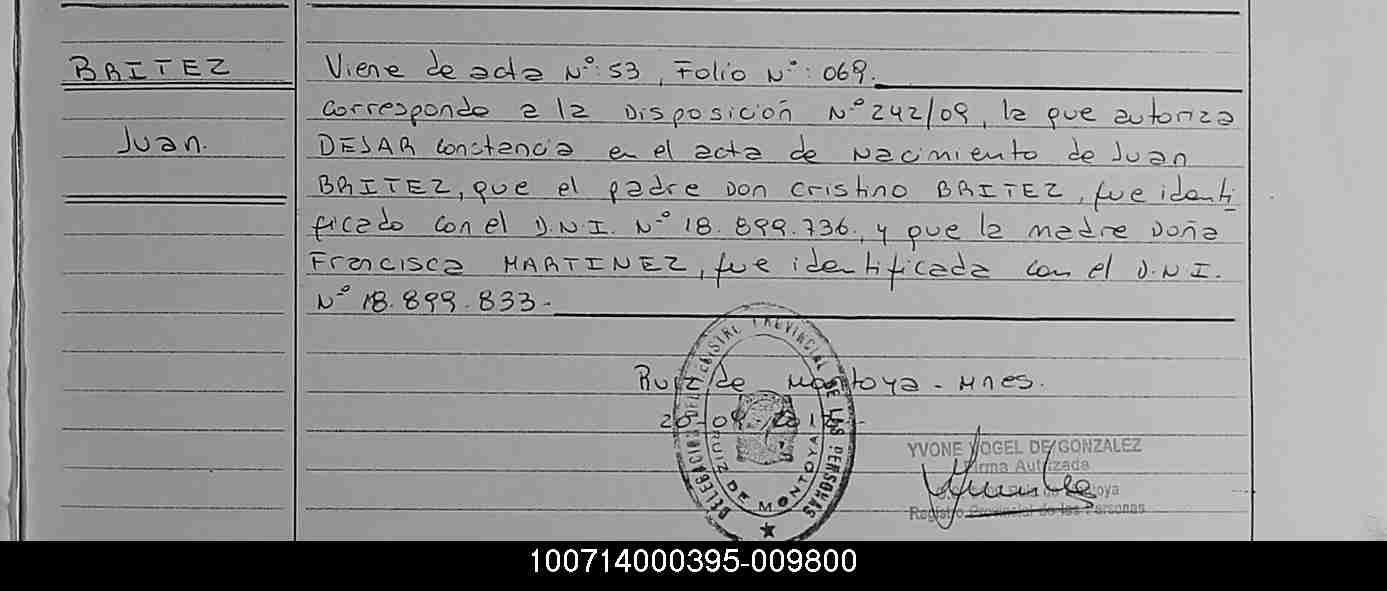 BRITEZ
Juan.
Viene de acta Nº: 53, Folio Nº: 069.
corresponde a la Disposición Nº 242/09, la que autoriza
DEJAR constancia en el acta de Nacimiento de Juan
BRITEZ, que el padre Don Cristino BRITEZ, fue identi
ficado con el D.N.I. Nº 18.899.736, y que la madre Doña
Francisca MARTINEZ, fue identificada con el D.N.I.
Nº 18.899.833-
Ruiz de Montoya - Mnes.
DELEGACION DEL REGISTRO PROVINCIAL DE LAS PERSONAS
RUIZ DE MONTOYA
YVONE VOGEL DE GONZALEZ
Firma Autorizada
Registro Provincial de las Personas
100714000395-009800